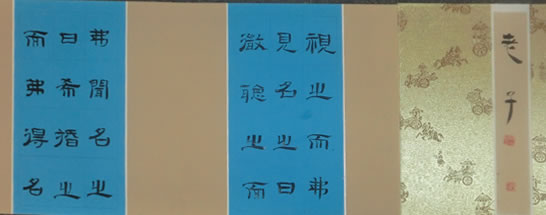 老子
視之而弗
見名之曰
微聽之而
弗聞名之
曰希捪之
而弗得名